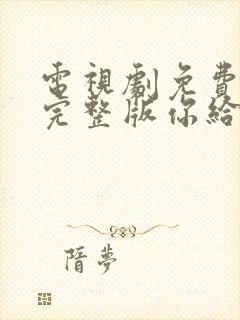 電視劇免費
完整版你給
隋夢